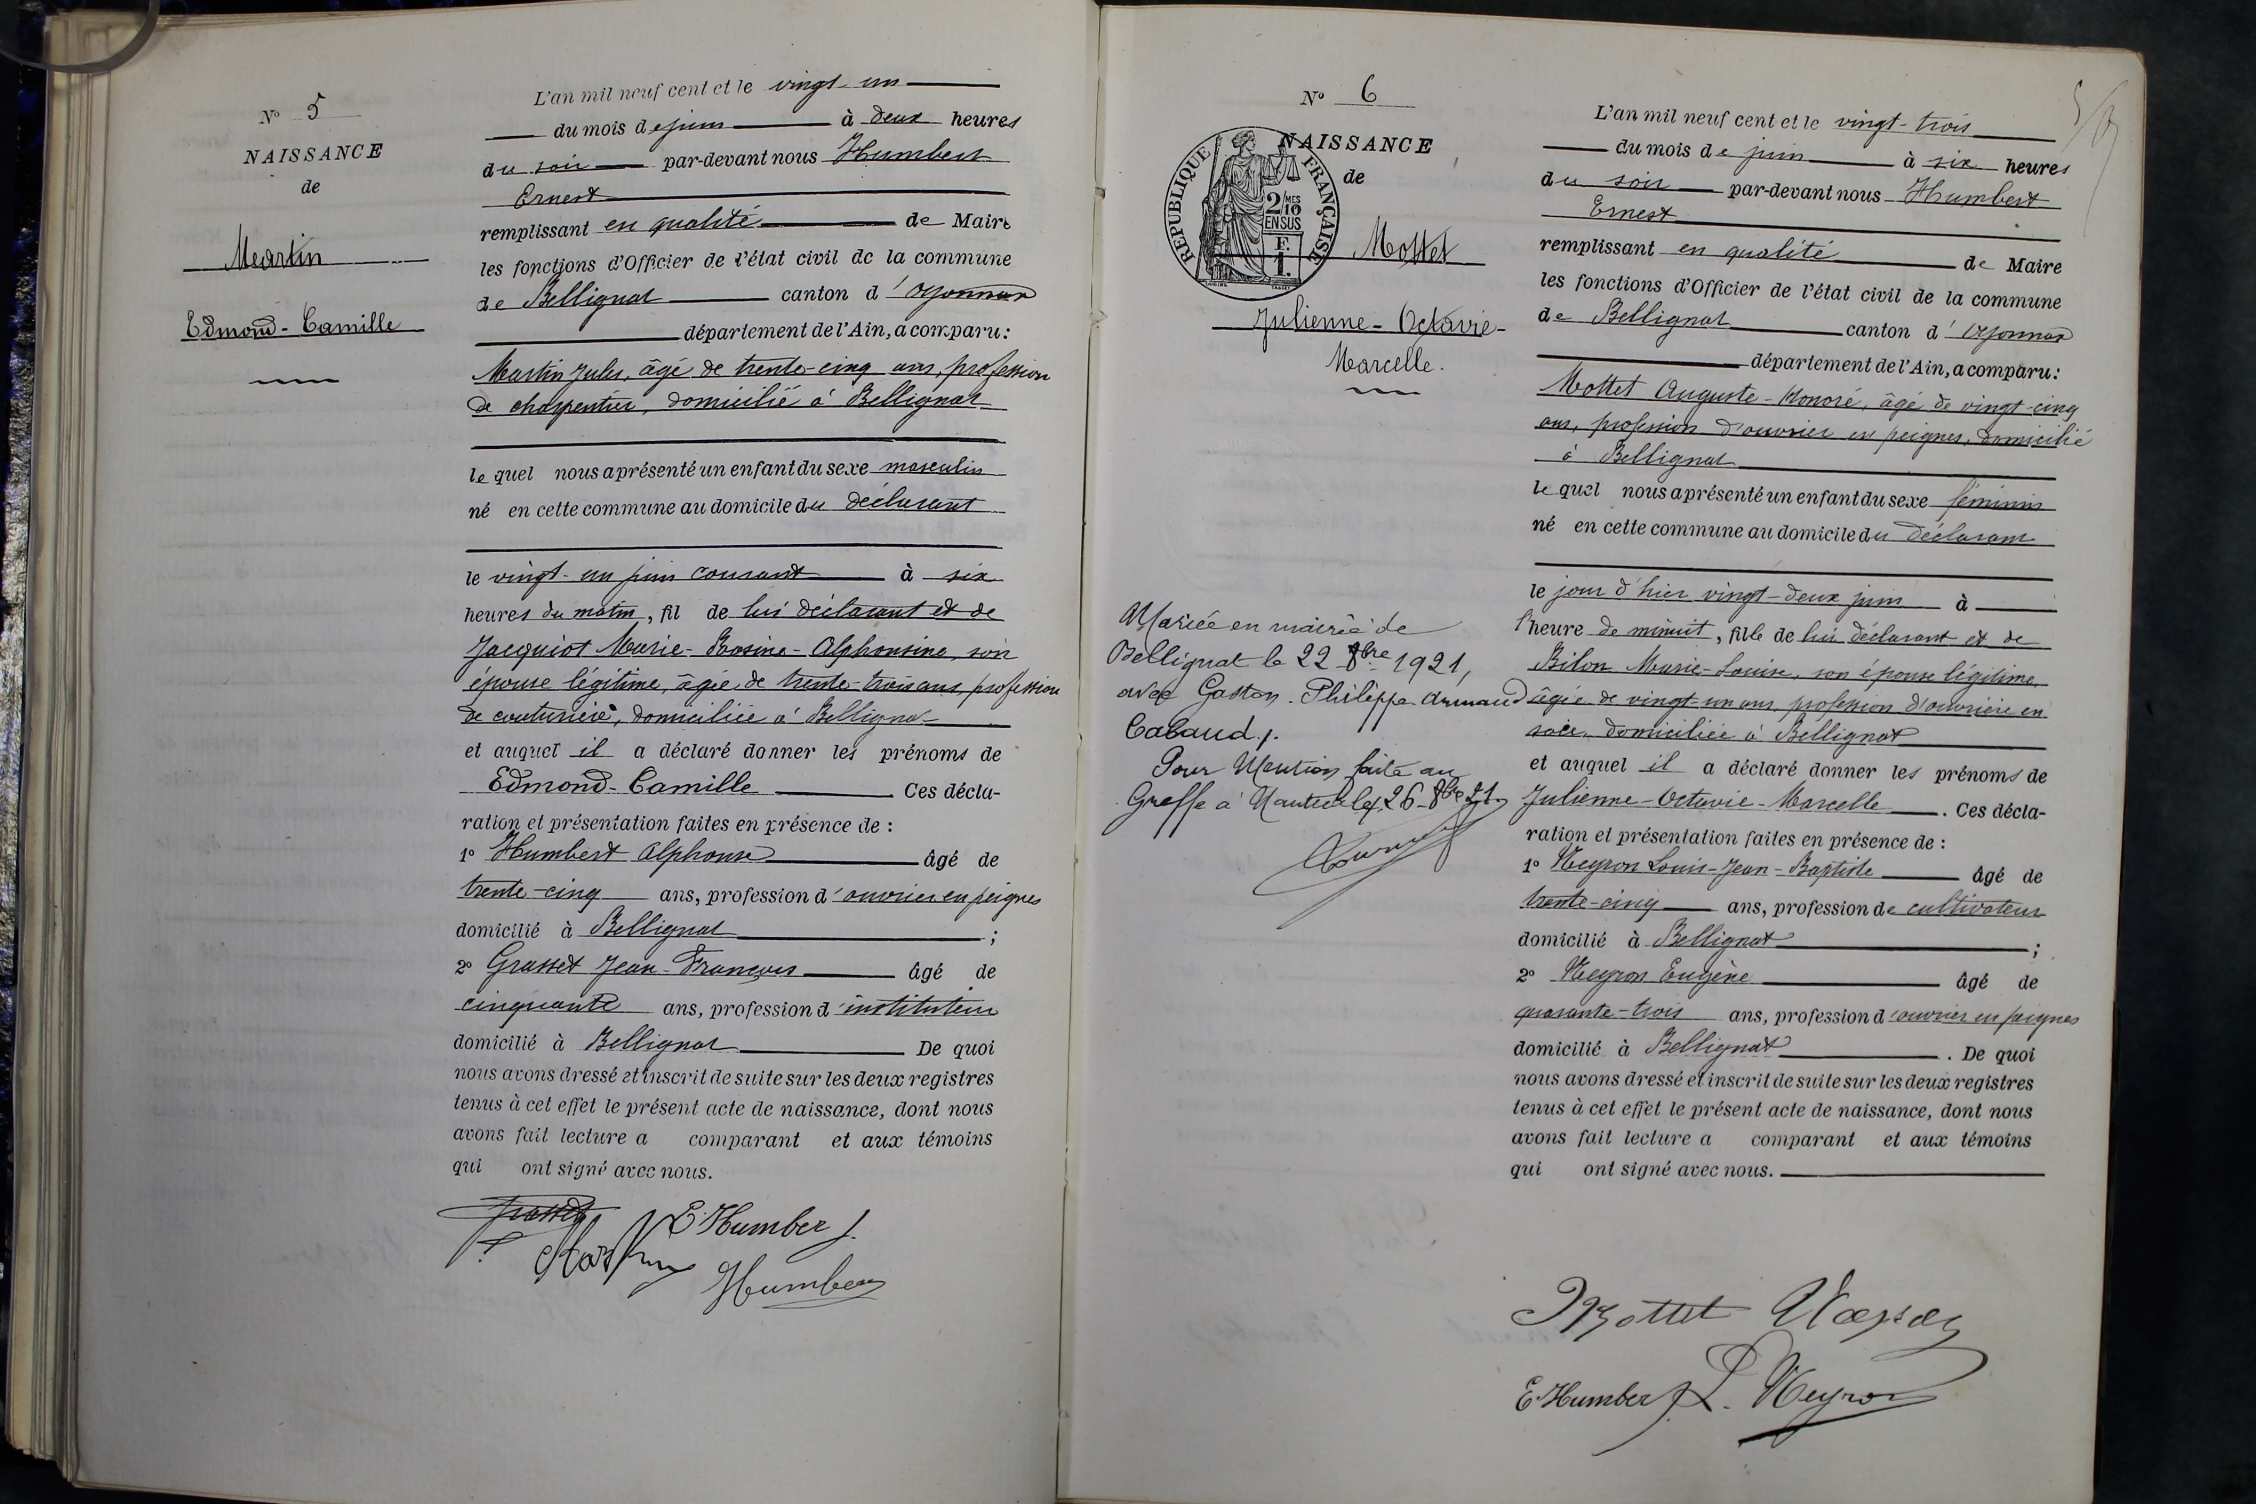 N° 5
NAISSANCE
de
Martin
Edmond-Camille
L'an mil neuf cent et le vingt-un
du mois de juin à deux heures
du soir par-devant nous Humbert
Ernest
remplissant en qualité de Maire
les fonctions d'Officier de l'état civil de la commune
de Bellignat canton d'Oyonnax
département de l'Ain, a comparu:
Martin Jules, âgé de trente-cinq ans, profession
de charpentier, domicilié à Bellignat
le quel nous a présenté un enfant du sexe masculin
né en cette commune au domicile du déclarant
le vingt-un juin courant à six
heures du matin, fil de lui déclarant et de
Jacquiot Marie-Rosine-Alphonsine, son
épouse légitime, âgée de trente-trois ans, profession
de couturière, domiciliée à Bellignat
et auquel il a déclaré donner les prénoms de
Edmond-Camille. Ces décla-
ration et présentation faites en présence de :
1° Humbert Alphonse âgé de
trente-cinq ans, profession d'ouvrier en peignes
domicilié à Bellignat ;
2° Grasset Jean-François âgé de
cinquante ans, profession d'instituteur
domicilié à Bellignat De quoi
nous avons dressé et inscrit de suite sur les deux registres
tenus à cet effet le présent acte de naissance, dont nous
avons fait lecture a comparant et aux témoins
qui ont signé avec nous.
Grasset E. Humbert
Martin Humbert
N° 6
NAISSANCE
de
REPUBLIQUE FRANÇAISE
2/10 MES
EN SUS
F.
1.
Mottet
Julienne-Octavie-
Marcelle.
Mariée en mairie de
Bellignat le 22 8bre 1921,
avec Gaston-Philippe-Armand
Cabaud./.
Pour Mention faite au
Greffe à Nantua le 26-8bre 21
L'an mil neuf cent et le vingt-trois
du mois de juin à six heures
du soir par-devant nous Humbert
Ernest
remplissant en qualité de Maire
les fonctions d'Officier de l'état civil de la commune
de Bellignat canton d'Oyonnax
département de l'Ain, a comparu:
Mottet Auguste-Honoré, âgé de vingt-cinq
ans, profession d'ouvrier en peignes, domicilié
à Bellignat
le quel nous a présenté un enfant du sexe féminin
né en cette commune au domicile du déclarant
le jour d'hier vingt-deux juin à
l'heure de minuit, fille de lui déclarant et de
Bilon Marie-Louise, son épouse légitime,
âgée de vingt-un ans, profession d'ouvrière en
soie, domiciliée à Bellignat
et auquel il a déclaré donner les prénoms de
Julienne-Octavie-Marcelle. Ces décla-
ration et présentation faites en présence de :
1° Neyron Louis-Jean-Baptiste âgé de
trente-cinq ans, profession de cultivateur
domicilié à Bellignat ;
2° Neyron Eugène âgé de
quarante-trois ans, profession d'ouvrier en peignes
domicilié à Bellignat. De quoi
nous avons dressé et inscrit de suite sur les deux registres
tenus à cet effet le présent acte de naissance, dont nous
avons fait lecture a comparant et aux témoins
qui ont signé avec nous.
Mottet
E. Humbert L. Neyron